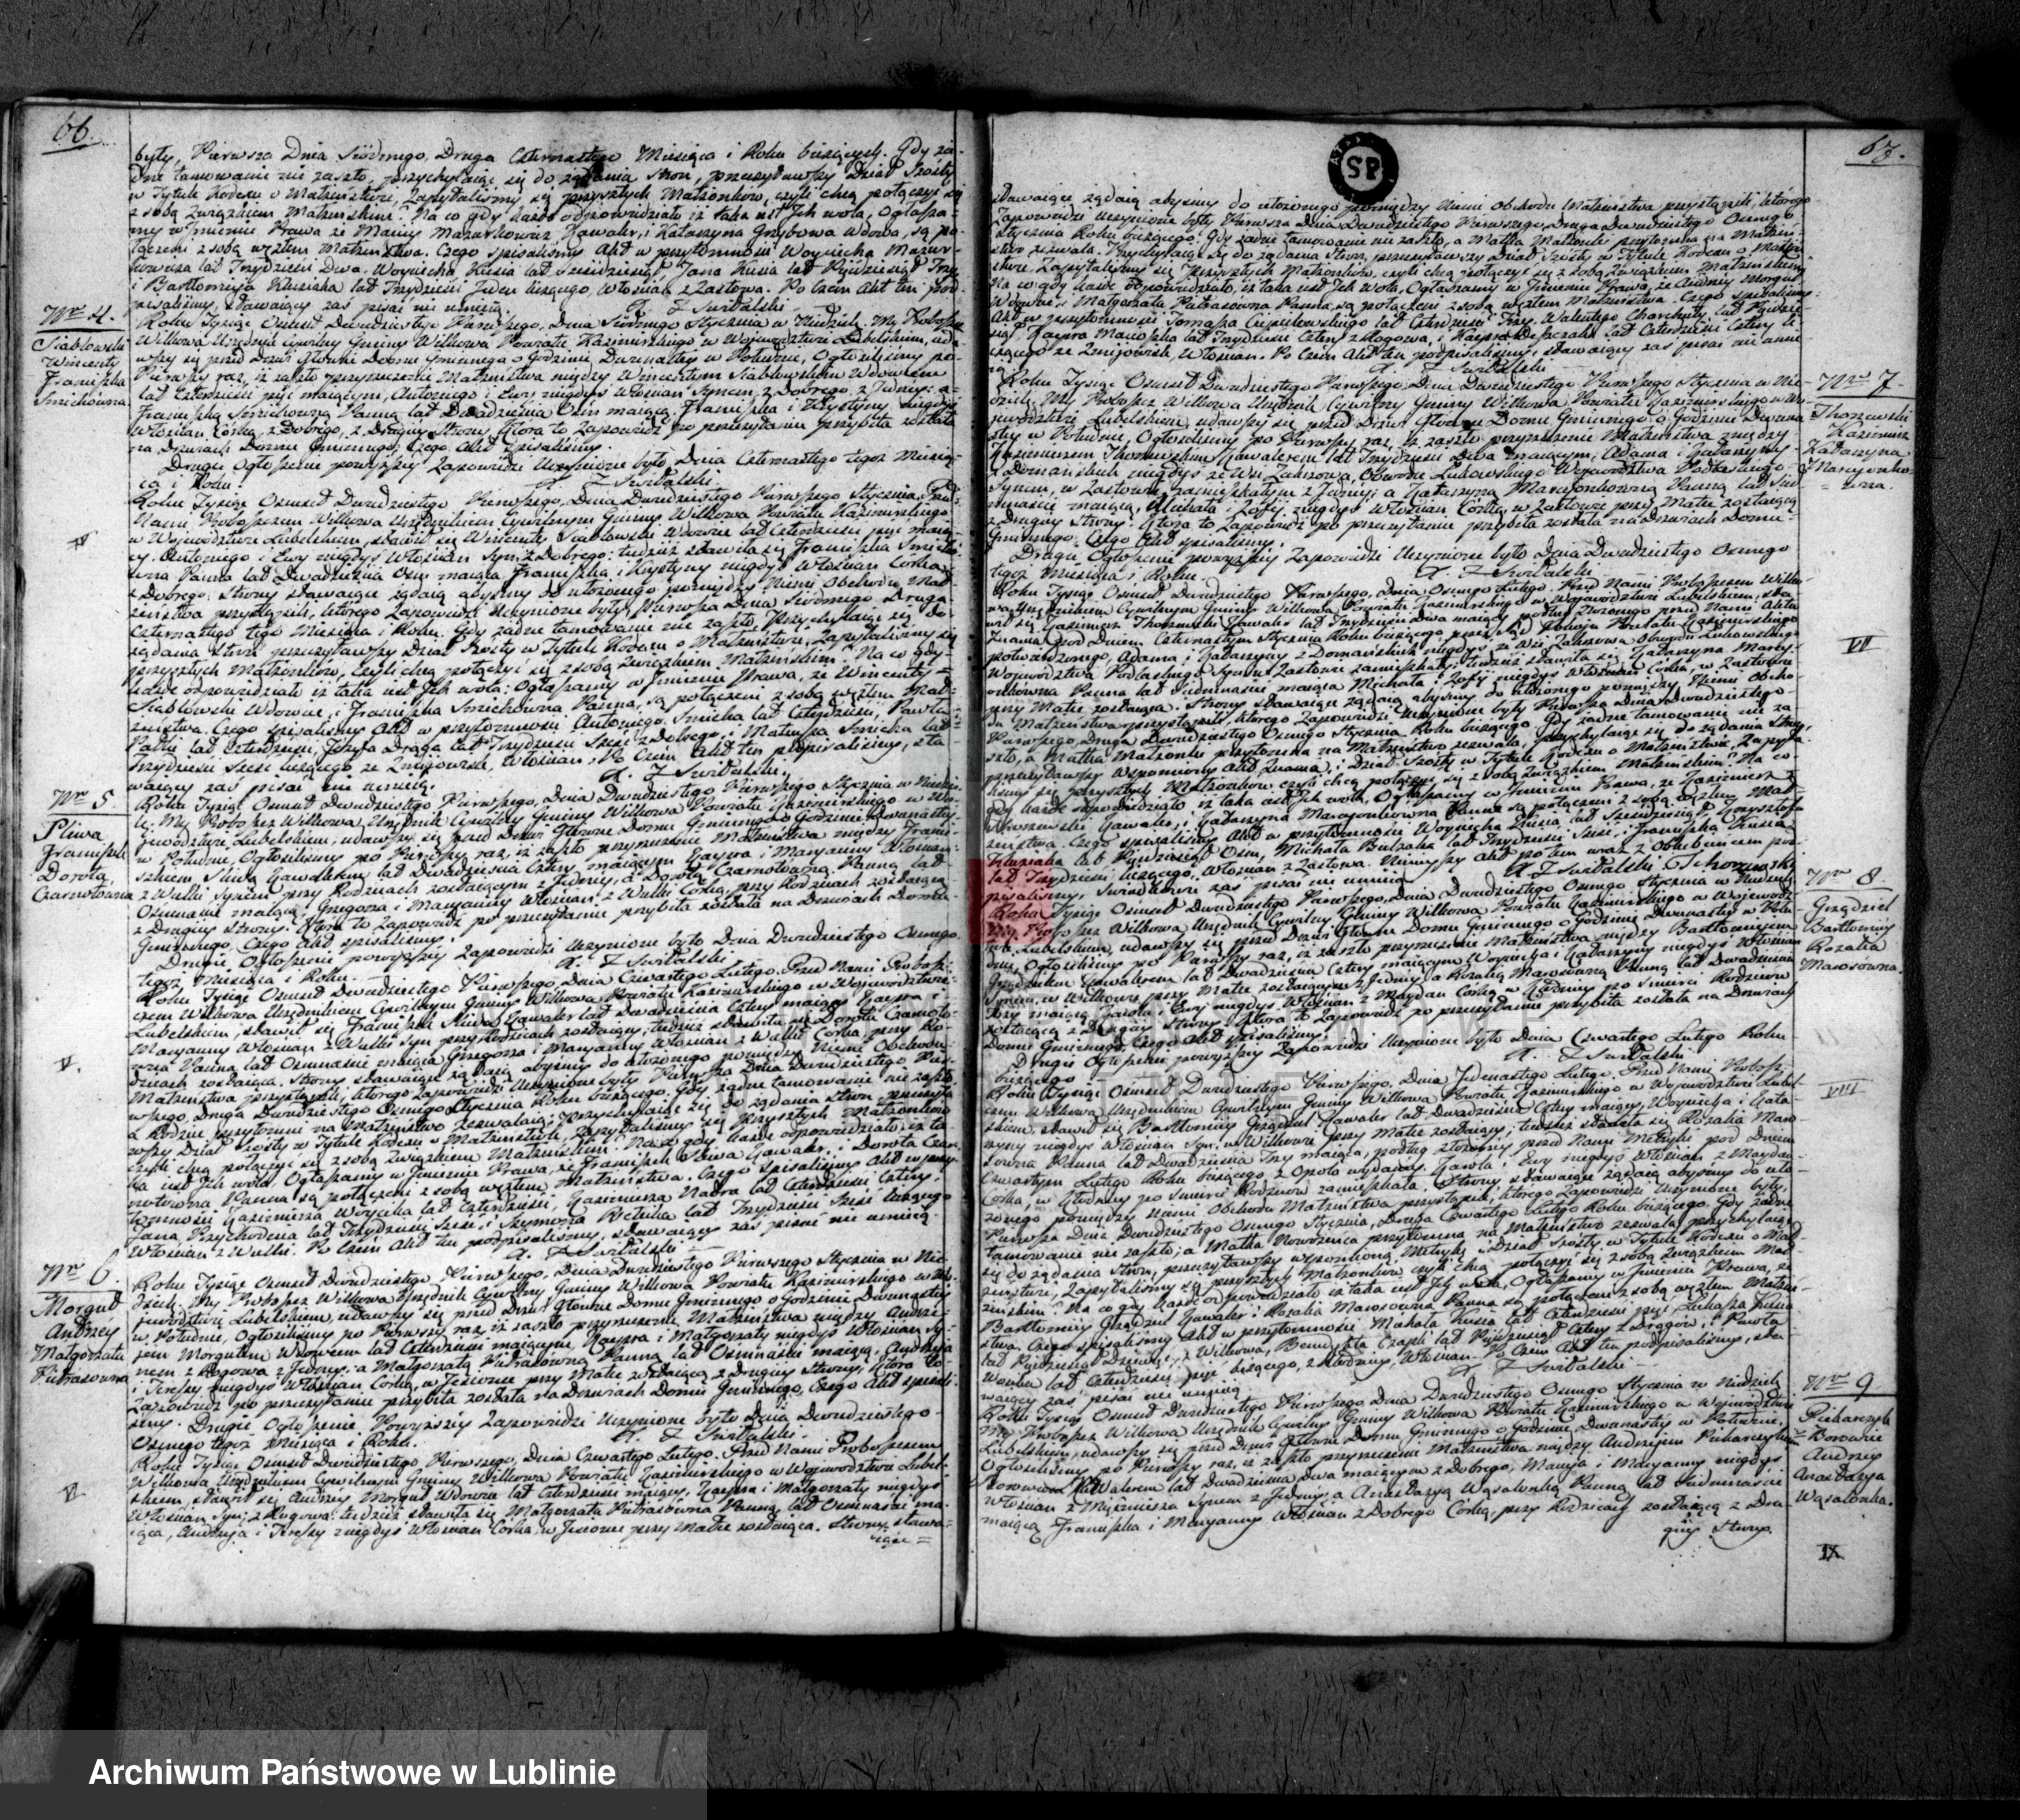 66.
były, Pierwsza Dnia Siódmego, Druga Czternastego Miesiąca i Roku bieżących. Gdy ża-
dne tamowanie nie zaszło, przychylaiąc się do żądania Stron, przeczytawszy Dział Szósty
w Tytule Kodexu o Małżeństwie, Zapytaliśmy się przyszłych Małżonków, czyli chcą połączyć się
z sobą Związkiem Małżeńskim. Na co gdy każde odpowiedziało iż taka iest Ich wola, Ogłasza-
my w Imieniu Prawa że Maciey Mazurkowicz Kawaler, i Katarzyna Grzybowa Wdowa, są po-
łączeni z sobą węzłem Małżeństwa. Czego Spisaliśmy Akt w przytomności Woyciecha Mazur-
kiewicza lat Trzydzieści Dwa, Woyciecha Kusia lat Sześćdziesiąt, Jana Kusia lat
i Bartłomieja lat Trzydzieści Jeden liczącego, Włościan z Zastowa. Po czem Akt ten pod-
pisaliśmy, stawaiący zaś pisać nie umieią.
Nro 4.
Siabłowski
Wincenty
Franciszka
Śmichówna
Roku Tysiąc Ośmset Dwudziestego Pierwszego, Dnia Siódmego Stycznia w Niedzielę. My Proboszcz
Wilkowa Urzędnik Cywilny Gminy Wilkowa Powiatu Kazimirskiego w Województwie Lubelskiem, uda-
wszy się przed Drzwi Główne Domu Gminnego o Godzinie Dwunastey w Południe, Ogłosiliśmy po
Pierwszy raz, iż zaszło przyrzeczenie Małżeństwa między Wincentym Siabłowskim Wdowcem
lat Czterdzieści pięć maiącym, Antoniego i Ewy niegdyś Włościan Synem, z Dobrego, z Jedney; a
Franciszką Śmichówną Panną lat Dwadzieścia Ośm maiącą, Franciszka i Krystyny niegdyś
Włościan Córką, z Dobrego, z Drugiey Strony. Która to Zapowiedź po przeczytaniu przybita została
na Drzwiach Domu Gminnego, Czego Akt spisaliśmy.
Drugie Ogłoszenie powyższey Zapowiedzi Uczynione było Dnia Czternastego tegoż Miesią-
ca i Roku.
IV
Roku Tysiąc Ośmset Dwudziestego Pierwszego, Dnia Dwudziestego Pierwszego Stycznia. Przed
Nami Proboszczem Wilkowa Urzędnikiem Cywilnym Gminy Wilkowa Powiatu Kazimirskiego
w Województwie Lubelskiem, stawił się Wincenty Siabłowski Wdowiec lat Czterdzieści pięć maią-
cy, Antoniego i Ewy niegdyś Włościan Syn z Dobrego; tudzież stawiła się Franciszka Śmichó-
wna Panna lat Dwadzieścia Ośm maiąca, Franciszka i Krystyny niegdyś Włościan Córka,
z Dobrego. Strony stawaiące żądaią abyśmy do ułożonego pomiędzy Niemi Obchodu Mał-
żeństwa przystąpili, którego Zapowiedzi Uczynione były, Pierwsza Dnia Siódmego Druga
Czternastego tego Miesiąca i Roku. Gdy żadne tamowanie nie zaszło, Przychylaiąc się do
żądania Stron przeczytawszy Dział Szósty w Tytule Kodexu o Małżeństwie, Zapytaliśmy się
przyszłych Małżonków, czyli chcą połączyć się z sobą Związkiem Małżeńskim. Na co gdy
każde odpowiedziało iż taka iest Ich wola; Ogłaszamy w Imieniu Prawa, że Wincenty
Siabłowski Wdowiec, i Franciszka Śmichówna Panna, są połączeni z sobą węzłem Mał-
żeństwa. Czego spisaliśmy Akt w przytomności Antoniego Śmicha lat Czterdzieści, Pawła
lat Czterdzieści, Józefa Draga lat Trzydzieści Sześć z Dobrego, i Mateusza Śmicha lat
Trzydzieści Sześć liczącego ze Żmijowisk, Włościan. Po Czem Akt ten podpisaliśmy, sta-
waiący zaś pisać nie umieią.
Nro 5.
Pliwa
Franciszek
Dorota
Czarnotówna
Roku Tysiąc Ośmset Dwudziestego Pierwszego, Dnia Dwudziestego Pierwszego Stycznia w Niedzie-
lę. My Proboszcz Wilkowa, Urzędnik Cywilny Gminy Wilkowa Powiatu Kazimirskiego w Wo-
jewództwie Lubelskiem, udawszy się przed Drzwi Główne Domu Gminnego o Godzinie Dwunastey
w Południe, Ogłosiliśmy po Pierwszy raz, iż zaszło przyrzeczenie Małżeństwa między Franci-
szkiem Pliwą Kawalerem lat Dwadzieścia Cztery maiącym Kacpra i Maryanny Włościan
z Wulki Synem przy Rodzicach zostaiącym z Jedney; a Dorotą Czarnotówną Panną lat
Ośmnaście maiącą, Grzegorza i Maryanny Włościan z Wulki Córką, przy Rodzicach zostaiącą
z Drugiey Strony. Która to Zapowiedź po przeczytaniu przybita została na Drzwiach Domu
Gminnego, Czego Akt spisaliśmy.
Drugie Ogłoszenie powyższey Zapowiedzi Uczynione było Dnia Dwudziestego Ósmego
tegoż Miesiąca i Roku.
V.
Roku Tysiąc Ośmset Dwudziestego Pierwszego, Dnia Czwartego Lutego. Przed Nami Probosz-
czem Wilkowa Urzędnikiem Cywilnym Gminy Wilkowa Powiatu Kazimirskiego w Województwie
Lubelskiem, stawił się Franciszek Pliwa Kawaler lat Dwadzieścia Cztery maiący Kacpra i
Maryanny Włościan z Wulki Syn przy Rodzicach zostaiący; tudzież stawiła się Dorota Czarnotó-
wna Panna lat Ośmnaście maiąca Grzegorza i Maryanny Włościan z Wulki Córka, przy Ro-
dzicach zostaiąca. Strony stawaiące żądaią abyśmy do ułożonego pomiędzy Niemi Obchodu
Małżeństwa przystąpili, którego Zapowiedzi Uczynione były Pierwsza Dnia Dwudziestego Pier-
wszego, Druga Dwudziestego Ósmego Stycznia Roku bieżącego. Gdy żadne tamowanie nie zaszło,
a Rodzice przytomni na Małżeństwo zezwalaią; przychylaiąc się do żądania Stron przeczyta-
wszy Dział Szósty w Tytule Kodexu o Małżeństwie, Zapytaliśmy się przyszłych Małżonków
czyli chcą połączyć się z sobą Związkiem Małżeńskim. Na co gdy każde odpowiedziało, iż ta-
ka iest Ich wola. Ogłaszamy w Imieniu Prawa, że Franciszek Pliwa Kawaler, i Dorota Czar-
notówna Panna są połączeni z sobą węzłem Małżeństwa. Czego spisaliśmy Akt w przy-
tomności Kazimierza Woycika lat Czterdzieści, Kazimierza Nadra lat Czterdzieści Cztery,
Jana Przychodnia lat Trzydzieści Sześć, i Szymona Beciuka lat Trzydzieści Sześć liczącego
Włościan z Wulki. Po Czem Akt ten podpisaliśmy, stawaiący zaś pisać nie umieią.
Nro 6.
Morgut
Andrzey
Małgorzata
Pietrasówna
Roku Tysiąc Ośmset Dwudziestego Pierwszego, Dnia Dwudziestego Pierwszego Stycznia w Nie-
dzielę. My Proboszcz Wilkowa Urzędnik Cywilny Gminy Wilkowa Powiatu Kazimirskiego w Wo-
jewództwie Lubelskiem, udawszy się przed Drzwi Główne Domu Gminnego o Godzinie Dwunastey
w Południe, Ogłosiliśmy po Pierwszy raz, iż zaszło przyrzeczenie Małżeństwa między Andrze-
jem Morgutem Wdowcem lat Czterdzieści maiącym, Kacpra i Małgorzaty niegdyś Włościan Sy-
nem z Rogowa z Jedney; a Małgorzatą Pietrasówną Panną lat Ośmnaście maiącą, Andrzeja
i Teressy niegdyś Włościan Córką, w Jeziornie przy Matce zostaiącą z Drugiey Strony. Która to
Zapowiedź po przeczytaniu przybita została na Drzwiach Domu Gminnego, Czego Akt spisali-
śmy. Drugie Ogłoszenie Powyższey Zapowiedzi Uczynione było Dnia Dwudziestego
Ósmego tegoż Miesiąca i Roku.
VI
Roku Tysiąc Ośmset Dwudziestego Pierwszego, Dnia Czwartego Lutego. Przed Nami Proboszczem
Wilkowa Urzędnikiem Cywilnym Gminy Wilkowa Powiatu Kazimirskiego w Województwie Lubel-
skiem, stawił się Andrzey Morgut Wdowiec lat Czterdzieści maiący, Kacpra i Małgorzaty niegdyś
Włościan Syn, z Rogowa; tudzież stawiła się Małgorzata Pietrasówna Panna lat Ośmnaście ma-
iąca, Andrzeja i Teressy niegdyś Włościan Córka, w Jeziornie przy Matce zostaiąca. Strony stawa-
iące =
67.
SP
stawaiące żądaią abyśmy do ułożonego pomiędzy Niemi Obchodu Małżeństwa przystąpili, którego
Zapowiedzi Uczynione były Pierwsza Dnia Dwudziestego Pierwszego, Druga Dwudziestego Ósmego
Stycznia Roku bieżącego. Gdy żadne tamowanie nie zaszło, a Matka Małżonki przytomna na Małżeń-
stwo zezwala. Przychylaiąc się do żądania Stron, przeczytawszy Dział Szósty w Tytule Kodexu o Małżeń-
stwie, Zapytaliśmy się Przyszłych Małżonków, czyli chcą połączyć się z sobą Związkiem Małżeńskim
Na co gdy każde odpowiedziało, iż taka iest Ich wola, Ogłaszamy w Imieniu Prawa, że Andrzey Morgut
Wdowiec i Małgorzata Pietrasówna Panna, są połączeni z sobą węzłem Małżeństwa. Czego spisaliśmy
Akt w przytomności Tomasza lat Czterdzieści Trzy, Walentego lat Pięćdzie-
siąt, Kacpra lat Trzydzieści Cztery z Rogowa, i Kacpra lat Czterdzieści Cztery li-
czącego ze Żmijowisk, Włościan. Po Czem Akt ten podpisaliśmy, stawaiący zaś pisać nie umie-
ią.
Nro 7.
Thorzewski
Kazimierz
Katarzyna
Marcyonko-
= wna.
Roku Tysiąc Ośmset Dwudziestego Pierwszego, Dnia Dwudziestego Pierwszego Stycznia w Nie-
dzielę. My Proboszcz Wilkowa Urzędnik Cywilny Gminy Wilkowa Powiatu Kazimirskiego w Wo-
jewództwie Lubelskiem, udawszy się przed Drzwi Główne Domu Gminnego o Godzinie Dwuna-
stey w Południe, Ogłosiliśmy po Pierwszy raz, iż zaszło przyrzeczenie Małżeństwa między
Kazimierzem Thorzewskim Kawalerem lat Trzydzieści Dwa maiącym, Adama i Katarzyny
z Domańskich niegdyś ze Wsi Zakrzowa, Obwodu Łukowskiego Województwa Podlaskiego
Synem, w Zastowie zamieszkałym z Jedney; a Katarzyną Marcyonkówną Panną lat Sie-
dmnaście maiącą, Michała i Zofij niegdyś Włościan Córką, w Zastowie przy Matce zostaiącą
z Drugiey Strony. Która to Zapowiedź po przeczytaniu przybita została na Drzwiach Domu
Gminnego. Czego Akt spisaliśmy.
Drugie Ogłoszenie powyższey Zapowiedzi Uczynione było Dnia Dwudziestego Ósmego
tegoż Miesiąca i Roku.
VII
Roku Tysiąc Ośmset Dwudziestego Pierwszego, Dnia Ósmego Lutego. Przed Nami Proboszczem Wilko-
wa Urzędnikiem Cywilnym Gminy Wilkowa Powiatu Kazimirskiego w Województwie Lubelskiem, sta-
wił się Kazimierz Thorzewski Kawaler lat Trzydzieści Dwa maiący podług złożonego przed Nami Aktu
Znania pod Dniem Czternastym Stycznia Roku bieżącego przez Sąd Pokoju Powiatu Kazimirskiego
potwierdzonego, Adama i Katarzyny z Domańskich niegdyś ze Wsi Zakrzowa Obwodu Łukowskiego
Województwa Podlaskiego Syn w Zastowie zamieszkały; tudzież stawiła się Katarzyna Marcy-
onkówna Panna lat Siedmnaście maiąca Michała i Zofij niegdyś Włościan Córka, w Zastowie
przy Matce zostaiąca. Strony stawaiące żądaią abyśmy do ułożonego pomiędzy Niemi Obcho-
du Małżeństwa przystąpili, którego Zapowiedzi Uczynione były Pierwsza Dnia Dwudziestego
Pierwszego, Druga Dwudziestego Ósmego Stycznia Roku bieżącego. Gdy żadne tamowanie nie za-
szło, a Matka Małżonki przytomna na Małżeństwo zezwala, przychylaiąc się do żądania Strony,
przeczytawszy wspomniony Akt Znania, i Dział Szósty w Tytule Kodexu o Małżeństwie, Zapyta-
liśmy się przyszłych Małżonków, czyli chcą połączyć się z sobą Związkiem Małżeńskim? Na co
gdy każde odpowiedziało iż taka iest Ich wola, Ogłaszamy w Imieniu Prawa, że Kazimierz
Thorzewski Kawaler, i Katarzyna Marcyonkówna Panna są połączeni z sobą węzłem Mał-
żeństwa. Czego spisaliśmy Akt w przytomności Woyciecha Kusia lat Sześćdziesiąt, Krzysztofa
lat Pięćdziesiąt Ośm, Michała lat Trzydzieści Sześć, i Franciszka Kusia
lat Trzydzieści liczącego, Włościan z Zastowa. Ninieyszy Akt po tem wraz z Oblubieńcem pod-
pisaliśmy, Świadkowie zaś pisać nie umieią
Nro 8.
Grządziel
Bartłomiey
Rozalia
Marosówna.
Roku Tysiąc Ośmset Dwudziestego Pierwszego, Dnia Dwudziestego Ósmego Stycznia w Niedzielę
My Proboszcz Wilkowa Urzędnik Cywilny Gminy Wilkowa Powiatu Kazimirskiego w Wojewódz-
twie Lubelskiem, udawszy się przed Drzwi Główne Domu Gminnego o Godzinie Dwunastey w Połu-
dnie, Ogłosiliśmy po Pierwszy raz, iż zaszło przyrzeczenie Małżeństwa między Bartłomieiem
Grządzielem Kawalerem lat Dwadzieścia Cztery maiącym Woyciecha i Katarzyny niegdyś Włościan
Synem, w Wilkowie przy Matce zostaiącym z Jedney; a Rozalią Marosówną Panną lat Dwadzieścia
Trzy maiącą Karola i Ewy niegdyś Włościan z Maydan Córką w Kłodnicy po śmierci Rodziców
zostaiącą z Drugiey Strony. Która to Zapowiedź po przeczytaniu przybita została na Drzwiach
Domu Gminnego, Czego Akt spisaliśmy.
Drugie Ogłoszenie powyższey Zapowiedzi Uczynione było Dnia Czwartego Lutego Roku
bieżącego
VIII
Roku Tysiąc Ośmset Dwudziestego Pierwszego, Dnia Jedenastego Lutego. Przed Nami Probosz-
czem Wilkowa Urzędnikiem Cywilnym Gminy Wilkowa Powiatu Kazimirskiego w Województwie Lubel-
skiem, stawił się Bartłomiey Grządziel Kawaler lat Dwadzieścia Cztery maiący, Woyciecha i Kata-
rzyny niegdyś Włościan Syn, w Wilkowie przy Matce zostaiący; tudzież stawiła się Rozalia Maro-
sówna Panna lat Dwadzieścia Trzy maiąca, podług złożoney przed Nami Metryki pod Dniem
Czwartym Lutego Roku bieżącego z Opola wydaney, Karola i Ewy niegdyś Włościan z Maydan
Córka, w Kłodnicy po śmierci Rodziców zamieszkała. Strony stawaiące żądaią abyśmy do uło-
żonego pomiędzy Niemi Obchodu Małżeństwa przystąpili, którego Zapowiedzi Uczynione były
Pierwsza Dnia Dwudziestego Ósmego Stycznia, Druga Czwartego Lutego Roku bieżącego. Gdy żadne
tamowanie nie zaszło, a Matka Nowożeńca przytomna na Małżeństwo zezwala, przychylaiąc
się do żądania Stron, przeczytawszy wspomnioną Metrykę i Dział Szósty w Tytule Kodexu o Mał-
żeństwie, Zapytaliśmy się przyszłych Małżonków czyli chcą połączyć się z sobą Związkiem Mał-
żeńskim? Na co gdy każde odpowiedziało iż taka iest Ich wola, Ogłaszamy w Imieniu Prawa, że
Bartłomiey Grządziel Kawaler i Rozalia Marosówna Panna są połączeni z sobą węzłem Małżeń-
stwa, Czego spisaliśmy Akt w przytomności Michała Kusia lat Czterdzieści pięć, Łukasza Kusia
lat Pięćdziesiąt Dziewięć, z Wilkowa, Benedykta Czapli lat Pięćdziesiąt Cztery z Dragów, i Pawła
lat Czterdzieści pięć liczącego, z Kłodnicy, Włościan. Po Czem Akt ten podpisaliśmy, sta-
waiący zaś pisać nie umieią
Nro 9.
Piekarczyk
= Borowiec
Andrzey
Anastazya
Wąsalonka.
Roku Tysiąc Ośmset Dwudziestego Pierwszego Dnia Dwudziestego Ósmego Stycznia w Niedzielę
My Proboszcz Wilkowa Urzędnik Cywilny Gminy Wilkowa Powiatu Kazimirskiego w Województwie
Lubelskiem, udawszy się przed Drzwi Główne Domu Gminnego o Godzinie Dwunastey w Południe,
Ogłosiliśmy po Pierwszy raz, iż zaszło przyrzeczenie Małżeństwa między Andrzejem Piekarczykiem
Borowcem Kawalerem lat Dwadzieścia Dwa maiącym z Dobrego, Macieja i Maryanny niegdyś
Włościan z Mięćmierza Synem z Jedney, a Anastazyą Wąsalonką Panną lat Siedmnaście
maiącą Franciszka i Maryanny Włościan z Dobrego Córką, przy Rodzicach zostaiącą z Dru-
giey Strony.
IX
Archiwum Państwowe w Lublinie